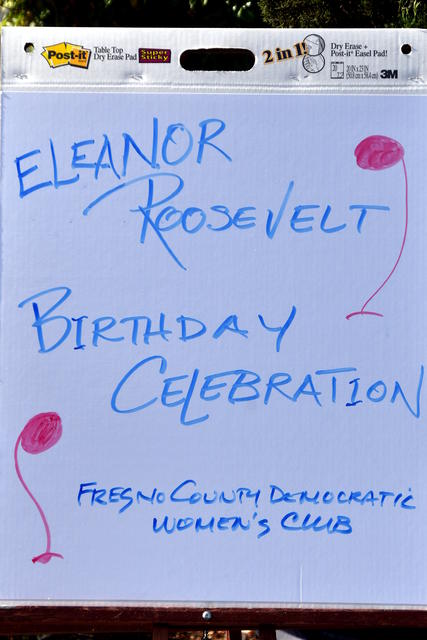 Post-it
Table Top
Dry Erase Pad
Super
Sticky
2 in 1!
Dry Erase +
Post-it Easel Pad!
3M
ELEANOR
ROOSEVELT
BIRTHDAY
CELEBRATION
FRESNO COUNTY DEMOCRATIC
WOMEN'S CLUB